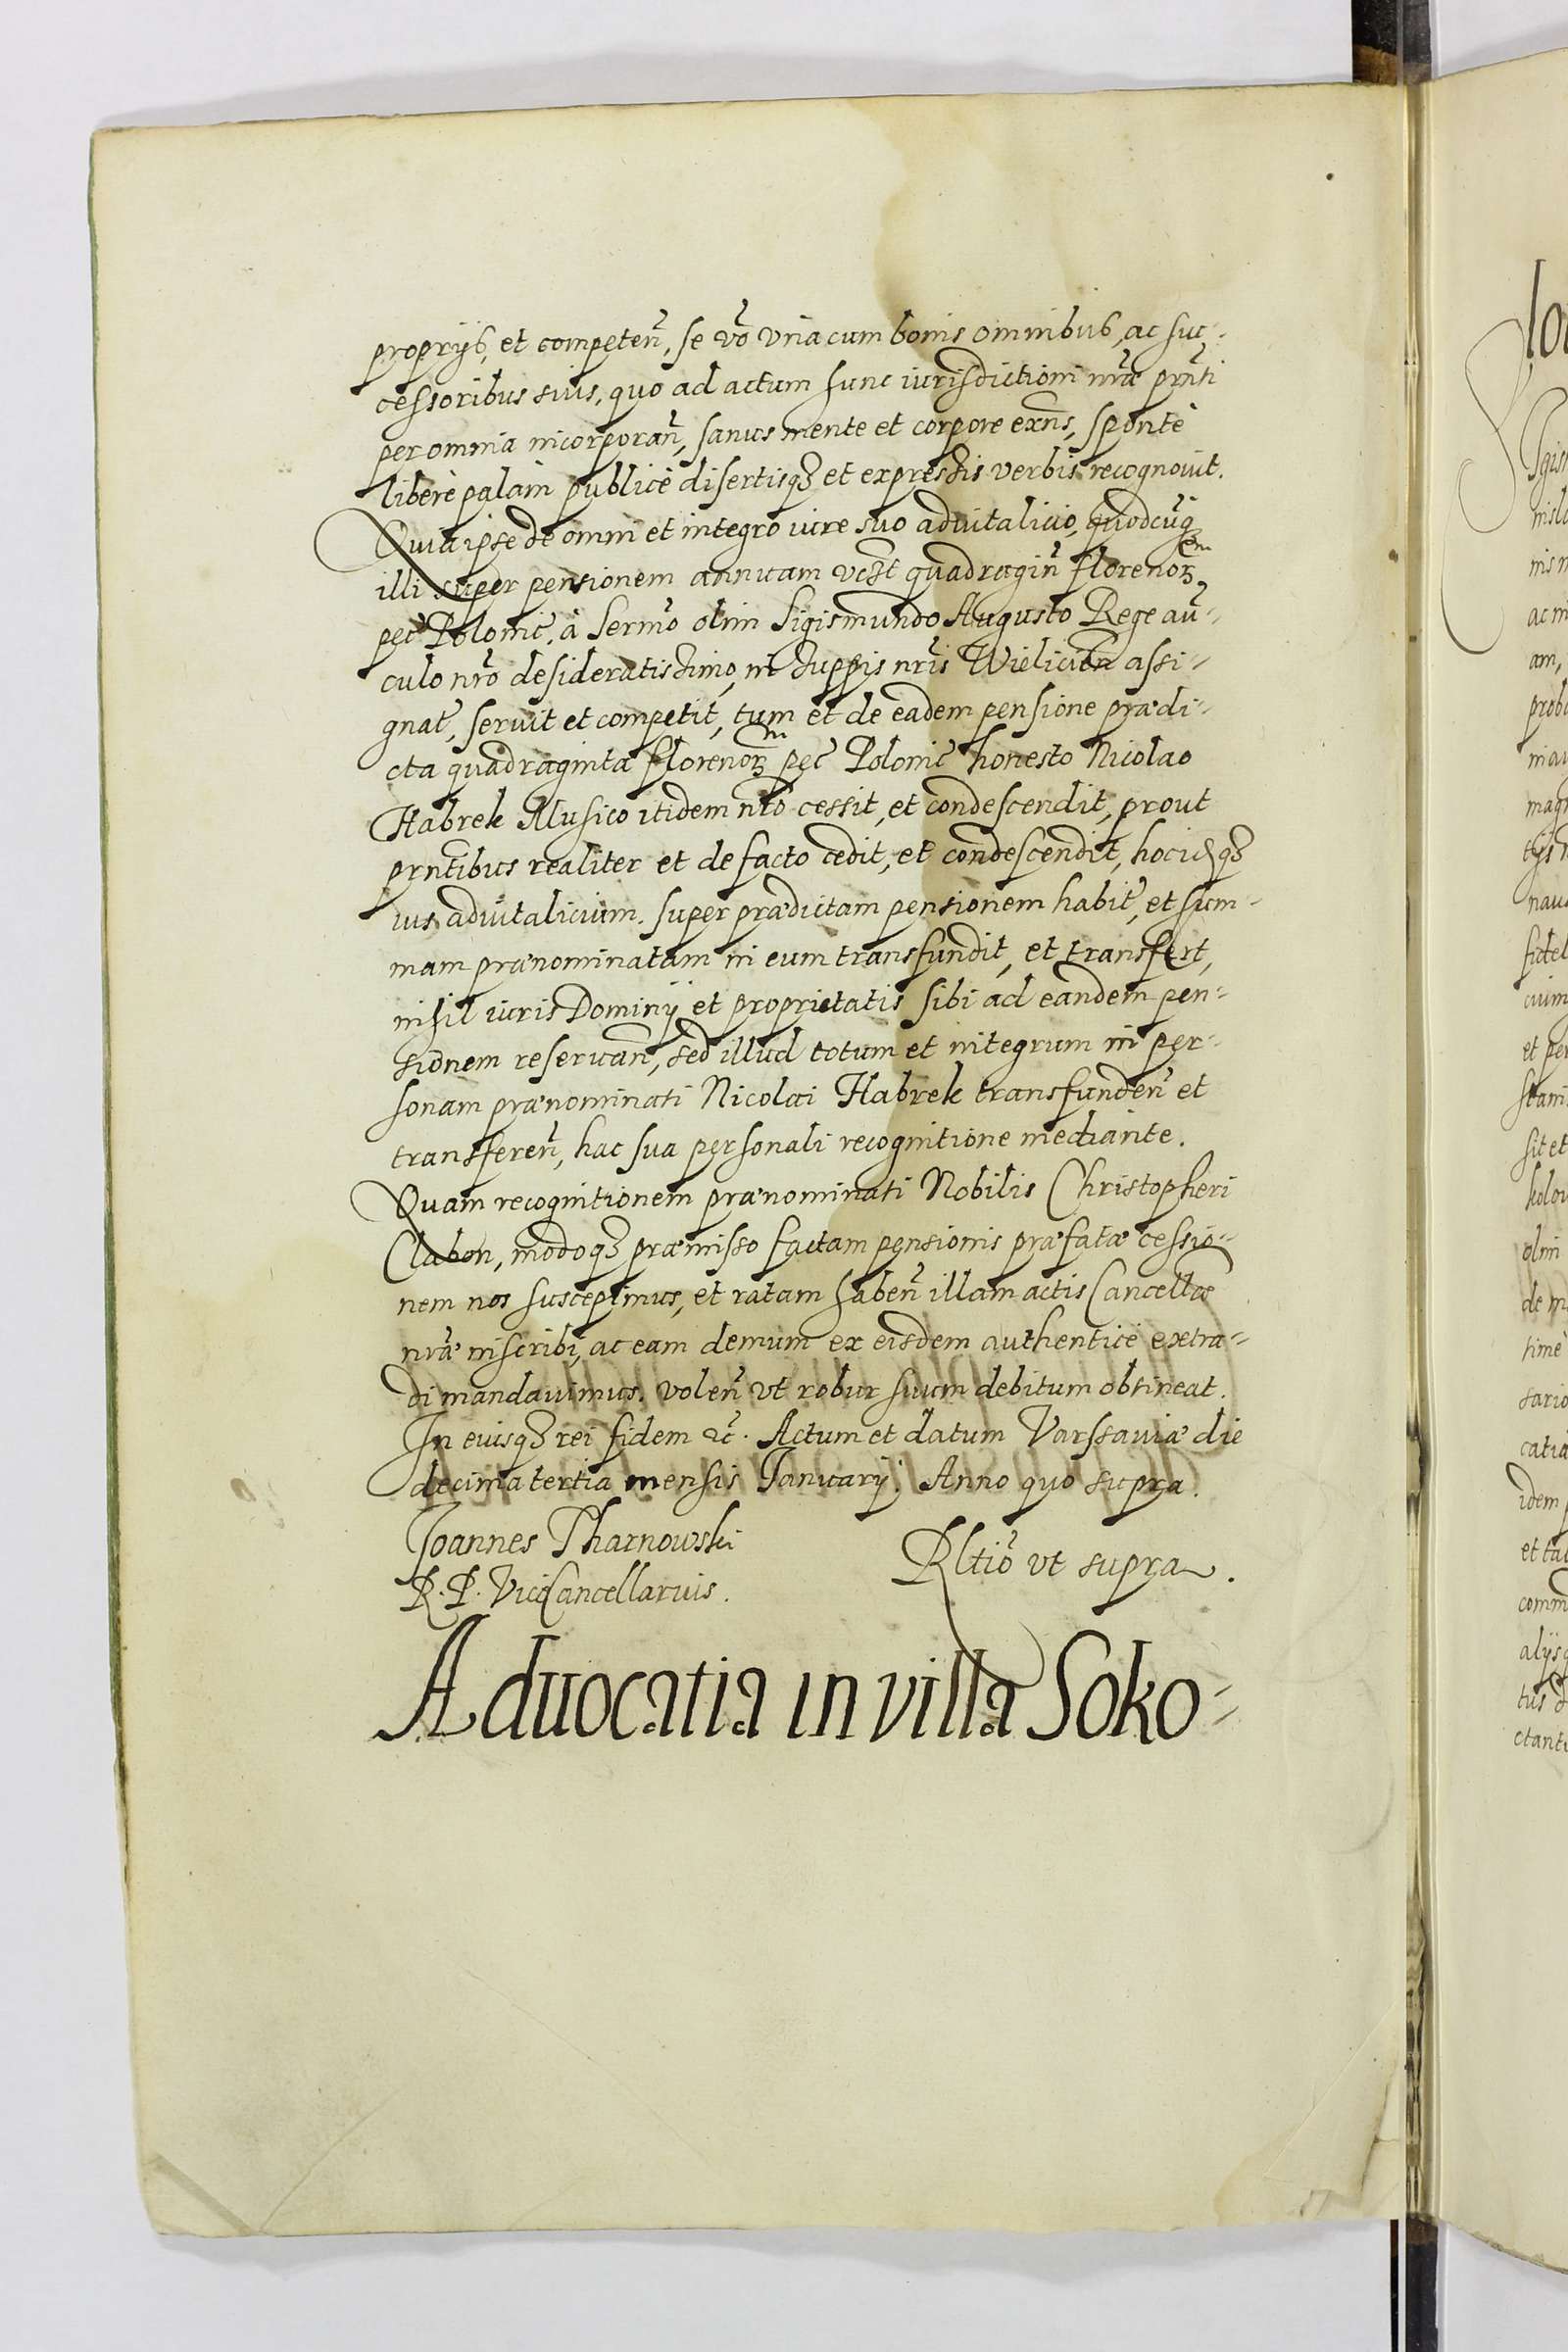 proprijs, et competeñ, se vō vna cum bonis omnibus, ac suc-
cessoribus suis, quo ad actum hunc iurisdictioni nr̃æ prñti
per omnia incorporañ, sanus mente et corpore exñs, sponte
libere palam publice disertisq₃ et expressis verbis recognouit.
Quia ipse de omni et integro iure suo aduitalicio, quodcũq
illi super pensionem annuam vcʒt quadragiñ florenoꝝ
pec̃ Polonic̃, à Serm̃o olim Sigismundo Augusto Rege auũ-
culo nr̃o desideratissimo, in suppis nr̃is Wielicien̄ assi-
gnat̃, seruit et competit, tum et de eadem pensione prædi-
cta quadraginta florenoꝝ pec̃ Polonic̃ honesto Nicolao
Habrek Musico itidem nr̃o cessit, et condescendit, prout
prñtibus realiter et de facto cedit, et condescendit, hocip̃q₃
ius aduitalicium super prædictam pensionem habit̃, et sum-
mam prænominatam in eum transfundit, et transfert,
nihil iuris Dominij et proprietatis sibi ad eandem pen-
sionem reseruañ, sed illud totum et integrum in per-
sonam prænominati Nicolai Habrek transfundeñ et
transfereñ, hac sua personali recognitione mediante.
Quam recognitionem prænominati Nobilis Christopheri
Clabon, modoq₃ præmisso factam pensionis præfatæ cessio-
nem nos suscepimus, et ratam habeñ illam actis Cancellæ
nr̃æ inscribi, ac eam demum ex eisdem authentice extra-
di mandauimus. voleñ vt robur suum debitum obtineat.
In euisq₃ rei fidem ꝛc̃. Actum et datum Varssauiæ die
decima tertia mensis Ianuarij. Anno quo supra.
Joannes Tharnowski
R. P. ViceCancellarius.
Rltiō vt supra.
Aduocatia in villa Soko-